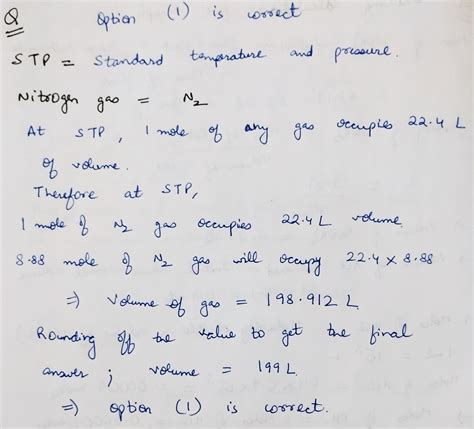 Q Option (1) is correct
STP = Standard temperature and pressure.
Nitrogen gas = N₂
At STP, 1 mole of any gas occupies 22.4 L
of volume.
Therefore at STP,
1 mole of N₂ gas occupies 22.4 L volume.
8.88 mole of N₂ gas will occupy 22.4 × 8.88
⇒ Volume of gas = 198.912 L
Rounding off the value to get the final
answer ; volume = 199 L
⇒ option (1) is correct.